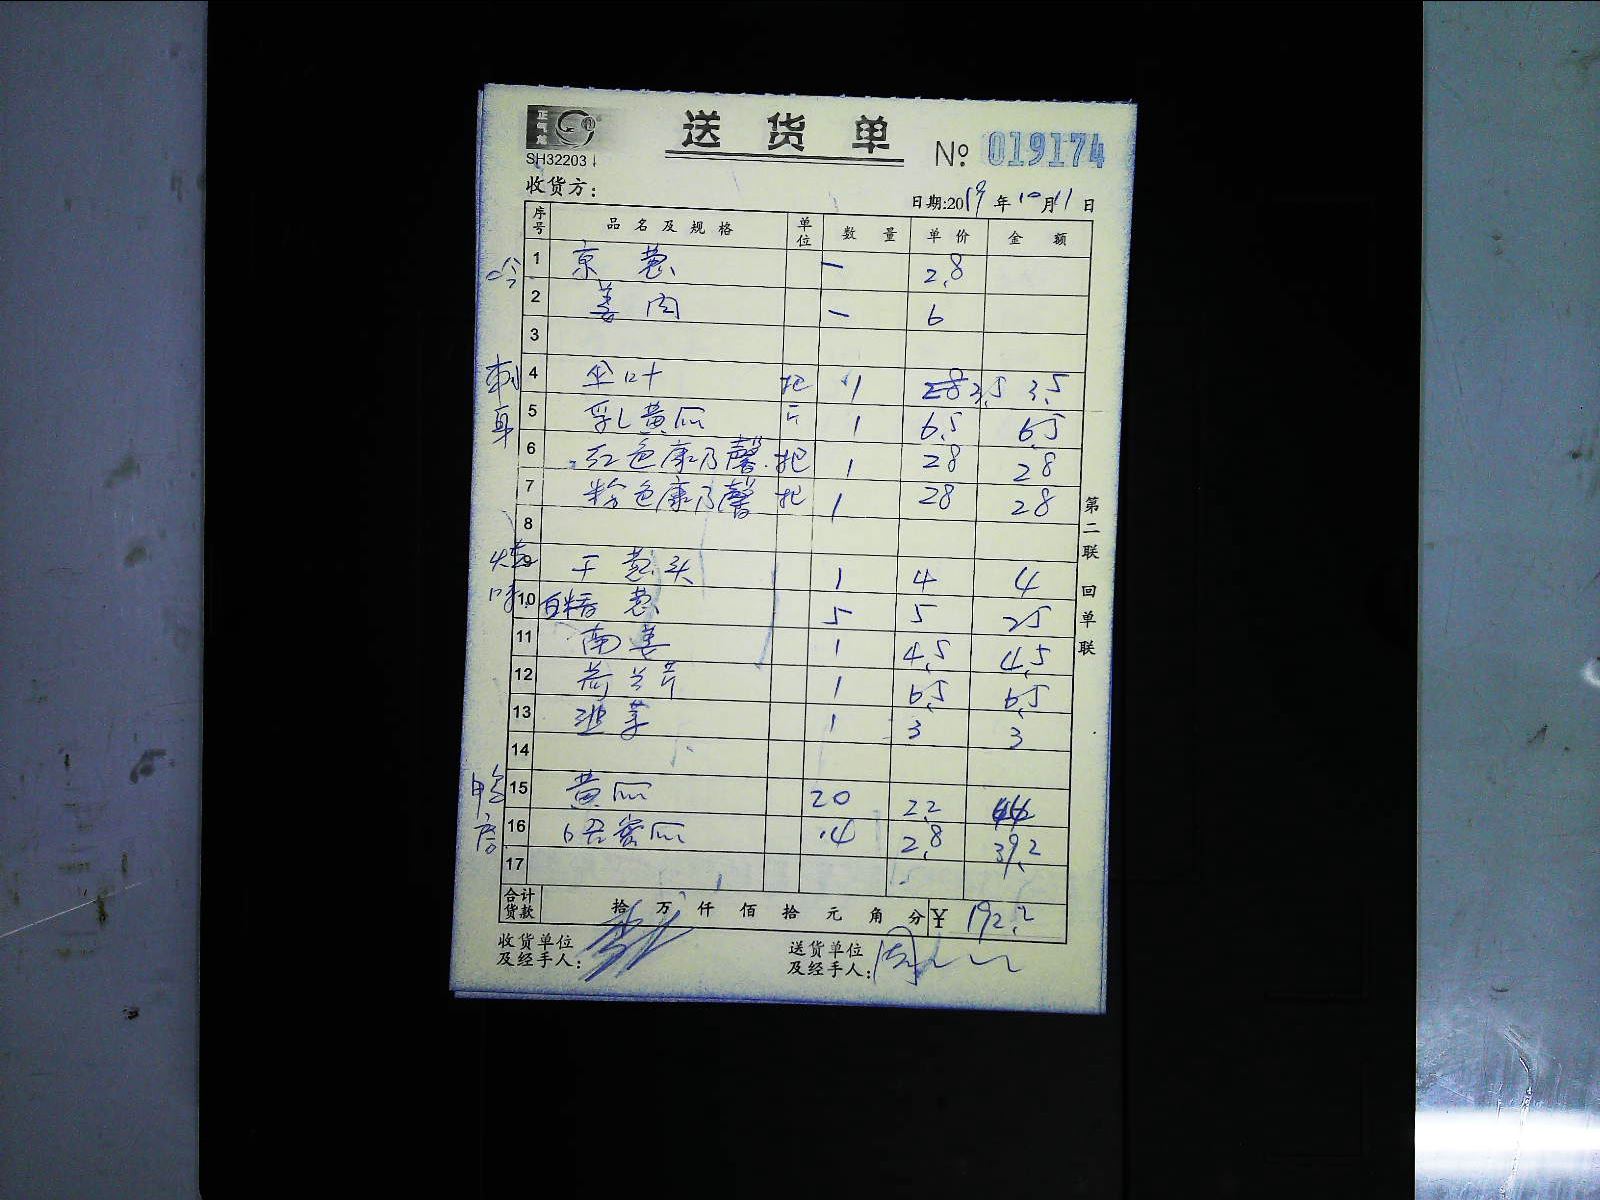 正气龙
SH32203
送货单
№ 019174
收货方：
日期:2019年10月11日
序号 品名及规格 单位 数量 单价 金额
1 京葱 一 2.8
2 姜肉 一 6
3
刺身
4 伞叶 把 1 3.5 3.5
5 乳黄瓜 斤 1 6.5 6.5
6 红色康乃馨 把 1 28 28
7 粉色康乃馨 把 1 28 28
8
烧味
9 干葱头 1 4 4
10 葱 5 5 25
11 南姜 1 4.5 4.5
12 荷兰芹 1 6.5 6.5
13 韭菜 1 3 3
14
鸭房
15 黄瓜 20 2.2 44
16 蜜瓜 14 2.8 39.2
17
合计货款 拾万仟佰拾元角分 ¥ 192.2
收货单位及经手人：
送货单位及经手人：
第二联 回单联